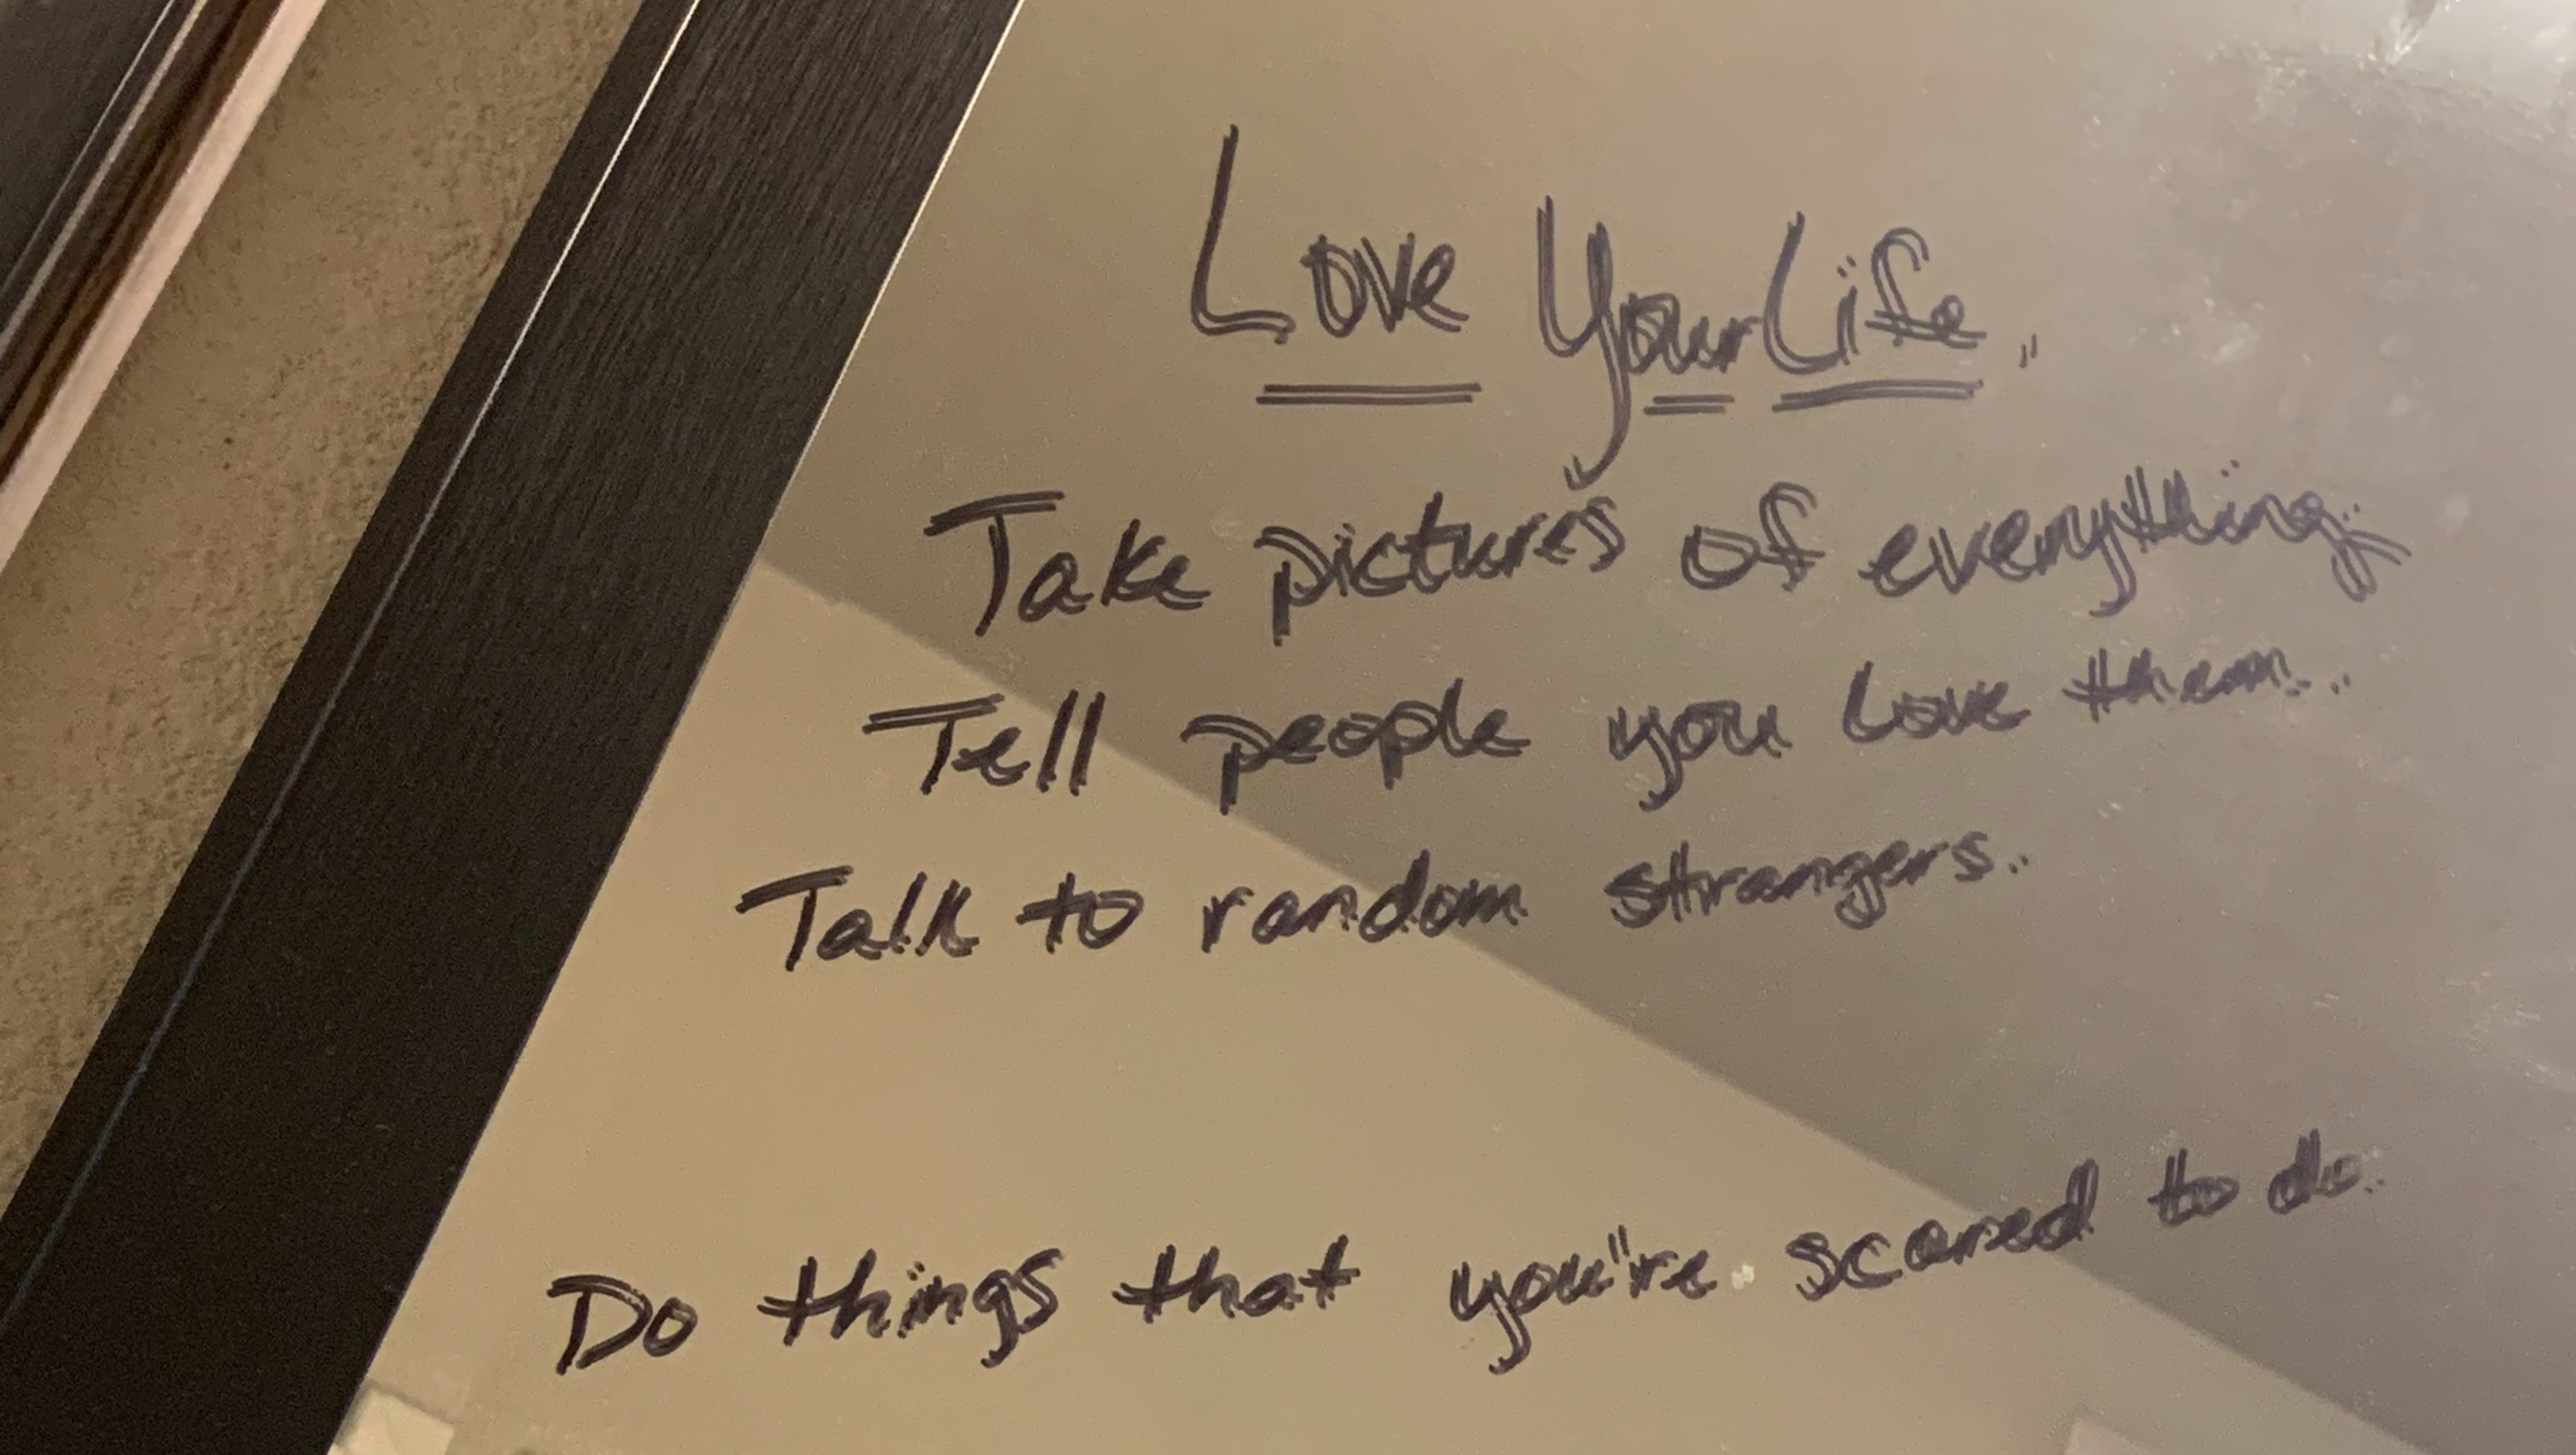 Love Your Life.
Take pictures of everything.
Tell people you love them.
Talk to random strangers.
Do things that you're scared to do.